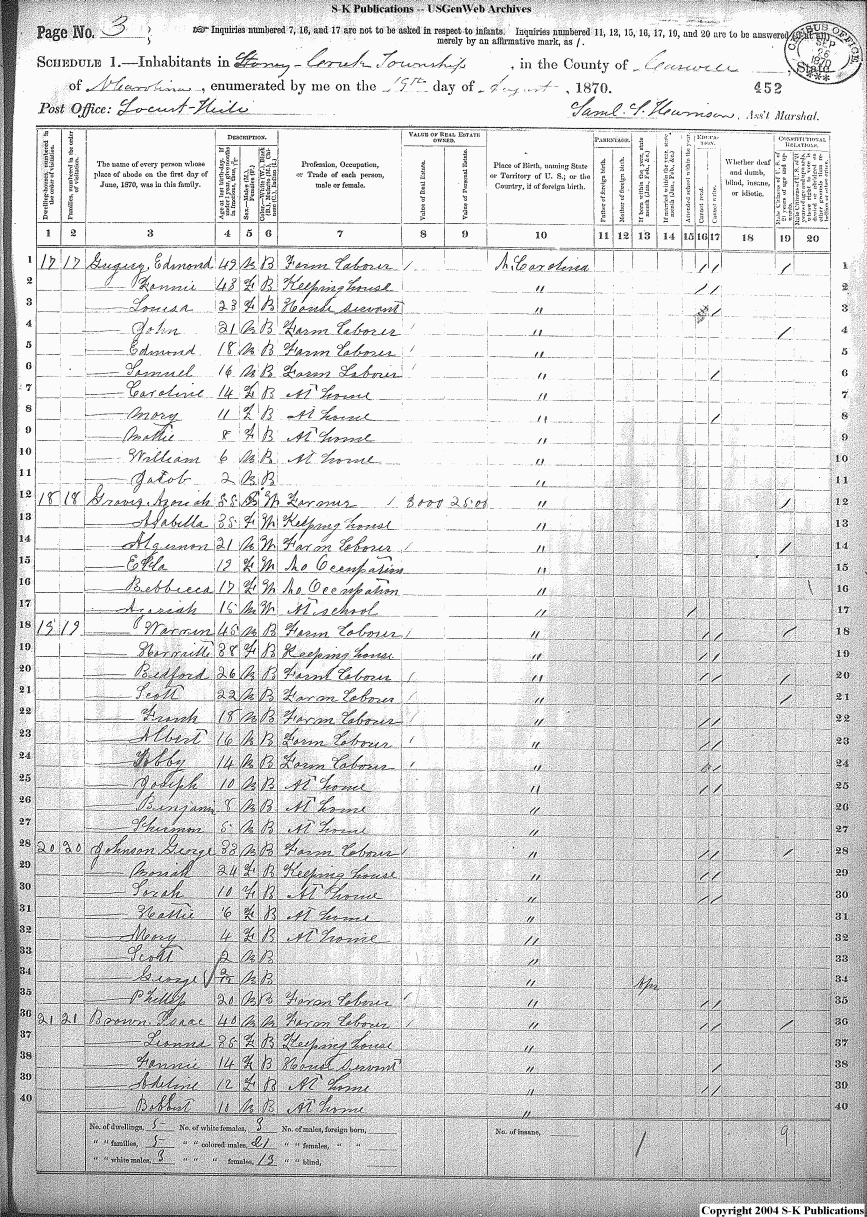 S-K Publications -- USGenWeb Archives
Page No. 3
Inquiries numbered 7, 16, and 17 are not to be asked in respect to infants. Inquiries numbered 11, 12, 15, 16, 17, 19, and 20 are to be answered (if at all) merely by an affirmative mark, as /.
CENSUS OFFICE SEP 26 1870
SCHEDULE 1.—Inhabitants in Stoney-Creek Township, in the County of Caswell, State
of N Carolina, enumerated by me on the 19th day of August, 1870. 452
Post Office: Locust-Hill Saml. S. Harrison, Ass't Marshal.
DESCRIPTION. VALUE OF REAL ESTATE OWNED. PARENTAGE. EDUCATION. CONSTITUTIONAL RELATIONS.
Dwelling-houses, numbered in the order of visitation.
Families, numbered in the order of visitation.
The name of every person whose place of abode on the first day of June, 1870, was in this family.
Age at last birth-day. If under 1 year, give months in fractions, thus,
Sex.—Males (M.), Females (F.)
Color.—White (W.), Black (B.), Mulatto (M.), Chinese (C.), Indian (I.)
Profession, Occupation, or Trade of each person, male or female.
Value of Real Estate.
Value of Personal Estate.
Place of Birth, naming State or Territory of U. S.; or the Country, if of foreign birth.
Father of foreign birth.
Mother of foreign birth.
If born within the year, state month (Jan., Feb., &c.)
If married within the year, state month (Jan., Feb., &c.)
Attended school within the year.
Cannot read.
Cannot write.
Whether deaf and dumb, blind, insane, or idiotic.
Male Citizens of U. S. of 21 years of age and upwards.
1 2 3 4 5 6 7 8 9 10 11 12 13 14 15 16 17 18 19 20
1 17 17 Edmond 49 M B Farm Laborer / N. Carolina / / / 1
2 — Fannie 43 F B Keeping house " / / 2
3 — Louisa 23 F B House Servant " / 3
4 — John 21 M B Farm Laborer / " / 4
5 — Edmond 18 M B Farm Laborer / " 5
6 — Samuel 16 M B Farm Laborer / " / 6
7 — Caroline 14 F B At home " 7
8 — Mary 11 F B At home " / 8
9 — Mattie 8 F B At home " 9
10 — William 6 M B At home " 10
11 — Jacob 2 M B " 11
12 18 18 Graves, Azariah 55 W Farmer / 3000 2500 " / 12
13 — Arabella 35 F W Keeping house " 13
14 — Algernon 21 M W Farm Laborer / " / 14
15 — 19 F W No Occupation " 15
16 — Rebbecca 17 F W No Occupation " 16
17 — Azariah 15 M W At school " / 17
18 19 19 — Warren 45 M B Farm Laborer / " / / / 18
19 — Harraitte 38 F B Keeping house " / / 19
20 — Bedford 26 M B Farm Laborer / " / / / 20
21 — Scott 22 M B Farm Laborer / " / 21
22 — Frank 18 M B Farm Laborer / " / / 22
23 — Albert 16 M B Farm Laborer / " / / 23
24 — 14 M B Farm Laborer / " / / 24
25 — Joseph 10 M B At home " / / 25
26 — Benjamn 8 M B At home " 26
27 — Shermon 5 M B At home " 27
28 20 20 Johnson, George 33 M B Farm Laborer / " / / / 28
29 — Moriah 24 F B Keeping house " / / 29
30 — Sarah 10 F B At home " / / 30
31 — Hattie 6 F B At home " 31
32 — Mary 4 F B At home " 32
33 — Scott 2 M B " 33
34 — George 2/12 M B " Apr 34
35 — Phillip 20 M B Farm Laborer / " / / 35
36 21 21 Brown, Isaac 40 M Farm Laborer / " / / / 36
37 — Leonna 35 F B Keeping house " 37
38 — Fannie 14 F B House Servant " / 38
39 — Adeline 12 F B At home " / / 39
40 — 10 M B At home " 40
No. of dwellings, 5 No. of white females, 3 No. of males, foreign born, No. of insane, 1 9
" " families, 5 " " colored males, 21 " " females, " "
" " white males, 3 " " " females, 13 " " blind,
Copyright 2004 S-K Publications